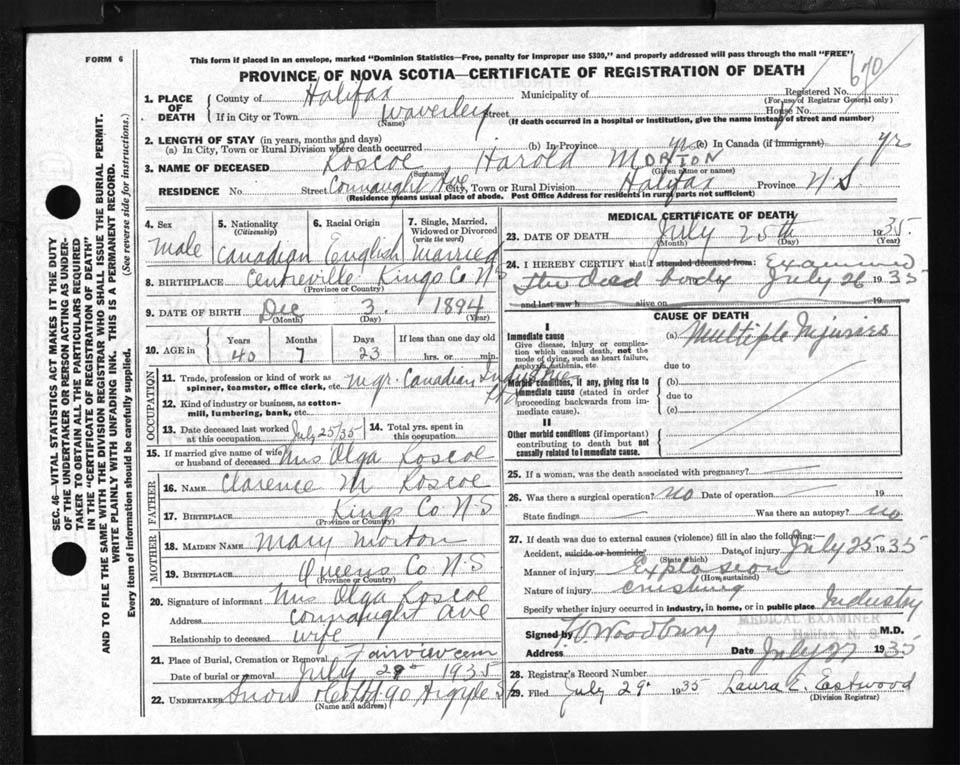 FORM 6
This form if placed in an envelope, marked "Dominion Statistics—Free, penalty for improper use $300," and properly addressed will pass through the mail "FREE"
PROVINCE OF NOVA SCOTIA—CERTIFICATE OF REGISTRATION OF DEATH
670
1. PLACE OF DEATH
County of Halifax Municipality of Registered No.
(For use of Registrar General only)
If in City or Town Waverley Street House No.
(Name) (If death occurred in a hospital or institution, give the name instead of street and number)
2. LENGTH OF STAY (in years, months and days)
(a) In City, Town or Rural Division where death occurred (b) In Province yrs (c) In Canada (if immigrant) yr
3. NAME OF DECEASED Roscoe, Harold MORTON
(Surname) (Given name or names)
RESIDENCE No. Street Connaught Ave City, Town or Rural Division Halifax Province N.S.
(Residence means usual place of abode. Post Office Address for residents in rural parts not sufficient)
4. Sex Male
5. Nationality (Citizenship) Canadian
6. Racial Origin English
7. Single, Married, Widowed or Divorced (write the word) Married
8. BIRTHPLACE Centreville Kings Co N S
(Province or Country)
9. DATE OF BIRTH Dec 3. 1894
(Month) (Day) (Year)
10. AGE in Years Months Days If less than one day old
40 7 23 hrs. or min.
OCCUPATION
11. Trade, profession or kind of work as spinner, teamster, office clerk, etc. Mgr. Canadian Industries
12. Kind of industry or business, as cotton-mill, lumbering, bank, etc.
13. Date deceased last worked at this occupation July 25/35
14. Total yrs. spent in this occupation
15. If married give name of wife or husband of deceased Mrs Olga Roscoe
FATHER
16. NAME Clarence M Roscoe
17. BIRTHPLACE Kings Co N.S
(Province or Country)
MOTHER
18. MAIDEN NAME Mary Morton
19. BIRTHPLACE Queens Co N.S
(Province or Country)
20. Signature of informant Mrs Olga Roscoe
Address Connaught Ave
Relationship to deceased wife
21. Place of Burial, Cremation or Removal Fairview cem
Date of burial or removal July 29 1935
22. UNDERTAKER Snow & Co Ltd 90 Argyle S
(Name and address)
MEDICAL CERTIFICATE OF DEATH
23. DATE OF DEATH July 25th 1935.
(Month) (Day) (Year)
24. I HEREBY CERTIFY that I attended deceased from: Examined
the dead body July 26 1935
and last saw h alive on 19
CAUSE OF DEATH
I
Immediate cause
Give disease, injury or complication which caused death, not the mode of dying, such as heart failure, asphyxia, asthenia, etc.
(a) Multiple Injuries
due to
Morbid conditions, if any, giving rise to immediate cause (stated in order proceeding backwards from immediate cause).
(b)
due to
(c)
II
Other morbid conditions (if important) contributing to death but not causally related to immediate cause.
25. If a woman, was the death associated with pregnancy?
26. Was there a surgical operation? no Date of operation 19
State findings Was there an autopsy? no
27. If death was due to external causes (violence) fill in also the following:—
Accident, suicide or homicide? Date of injury July 25 1935
(State which)
Manner of injury Explosion
(How sustained)
Nature of injury crushing
Specify whether injury occurred in industry, in home, or in public place Industry
MEDICAL EXAMINER
Halifax, N. S.
Signed by Woodbury M.D.
Address Date July 27 1935
28. Registrar's Record Number
29. Filed July 29. 1935 Laura E. Eastwood
(Division Registrar)
SEC. 46—VITAL STATISTICS ACT MAKES IT THE DUTY
OF THE UNDERTAKER OR PERSON ACTING AS UNDER-
TAKER TO OBTAIN ALL THE PARTICULARS REQUIRED
IN THE "CERTIFICATE OF REGISTRATION OF DEATH"
AND TO FILE THE SAME WITH THE DIVISION REGISTRAR WHO SHALL ISSUE THE BURIAL PERMIT.
WRITE PLAINLY WITH UNFADING INK. THIS IS A PERMANENT RECORD.
Every item of information should be carefully supplied. (See reverse side for instructions.)